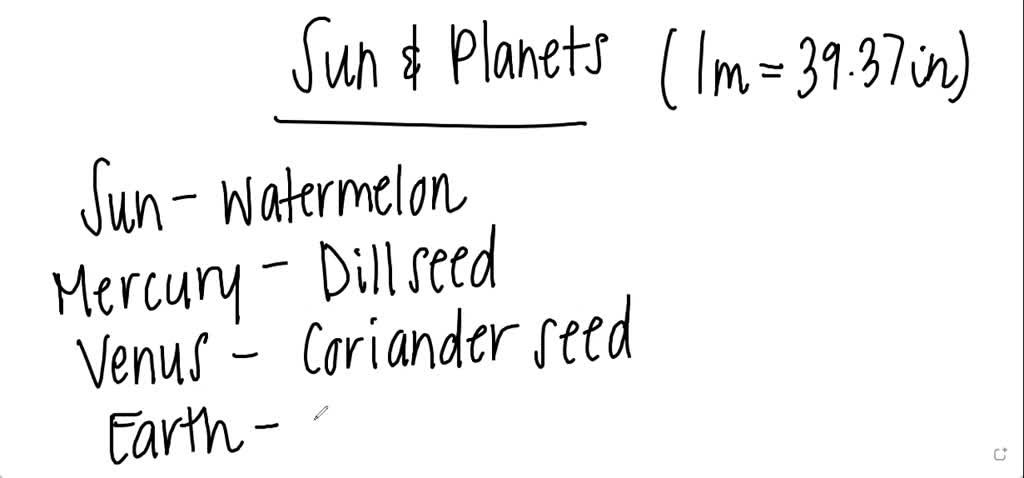 Sun & Planets (1m = 39.37in)
Sun - Watermelon
Mercury - Dill seed
Venus - Coriander seed
Earth -